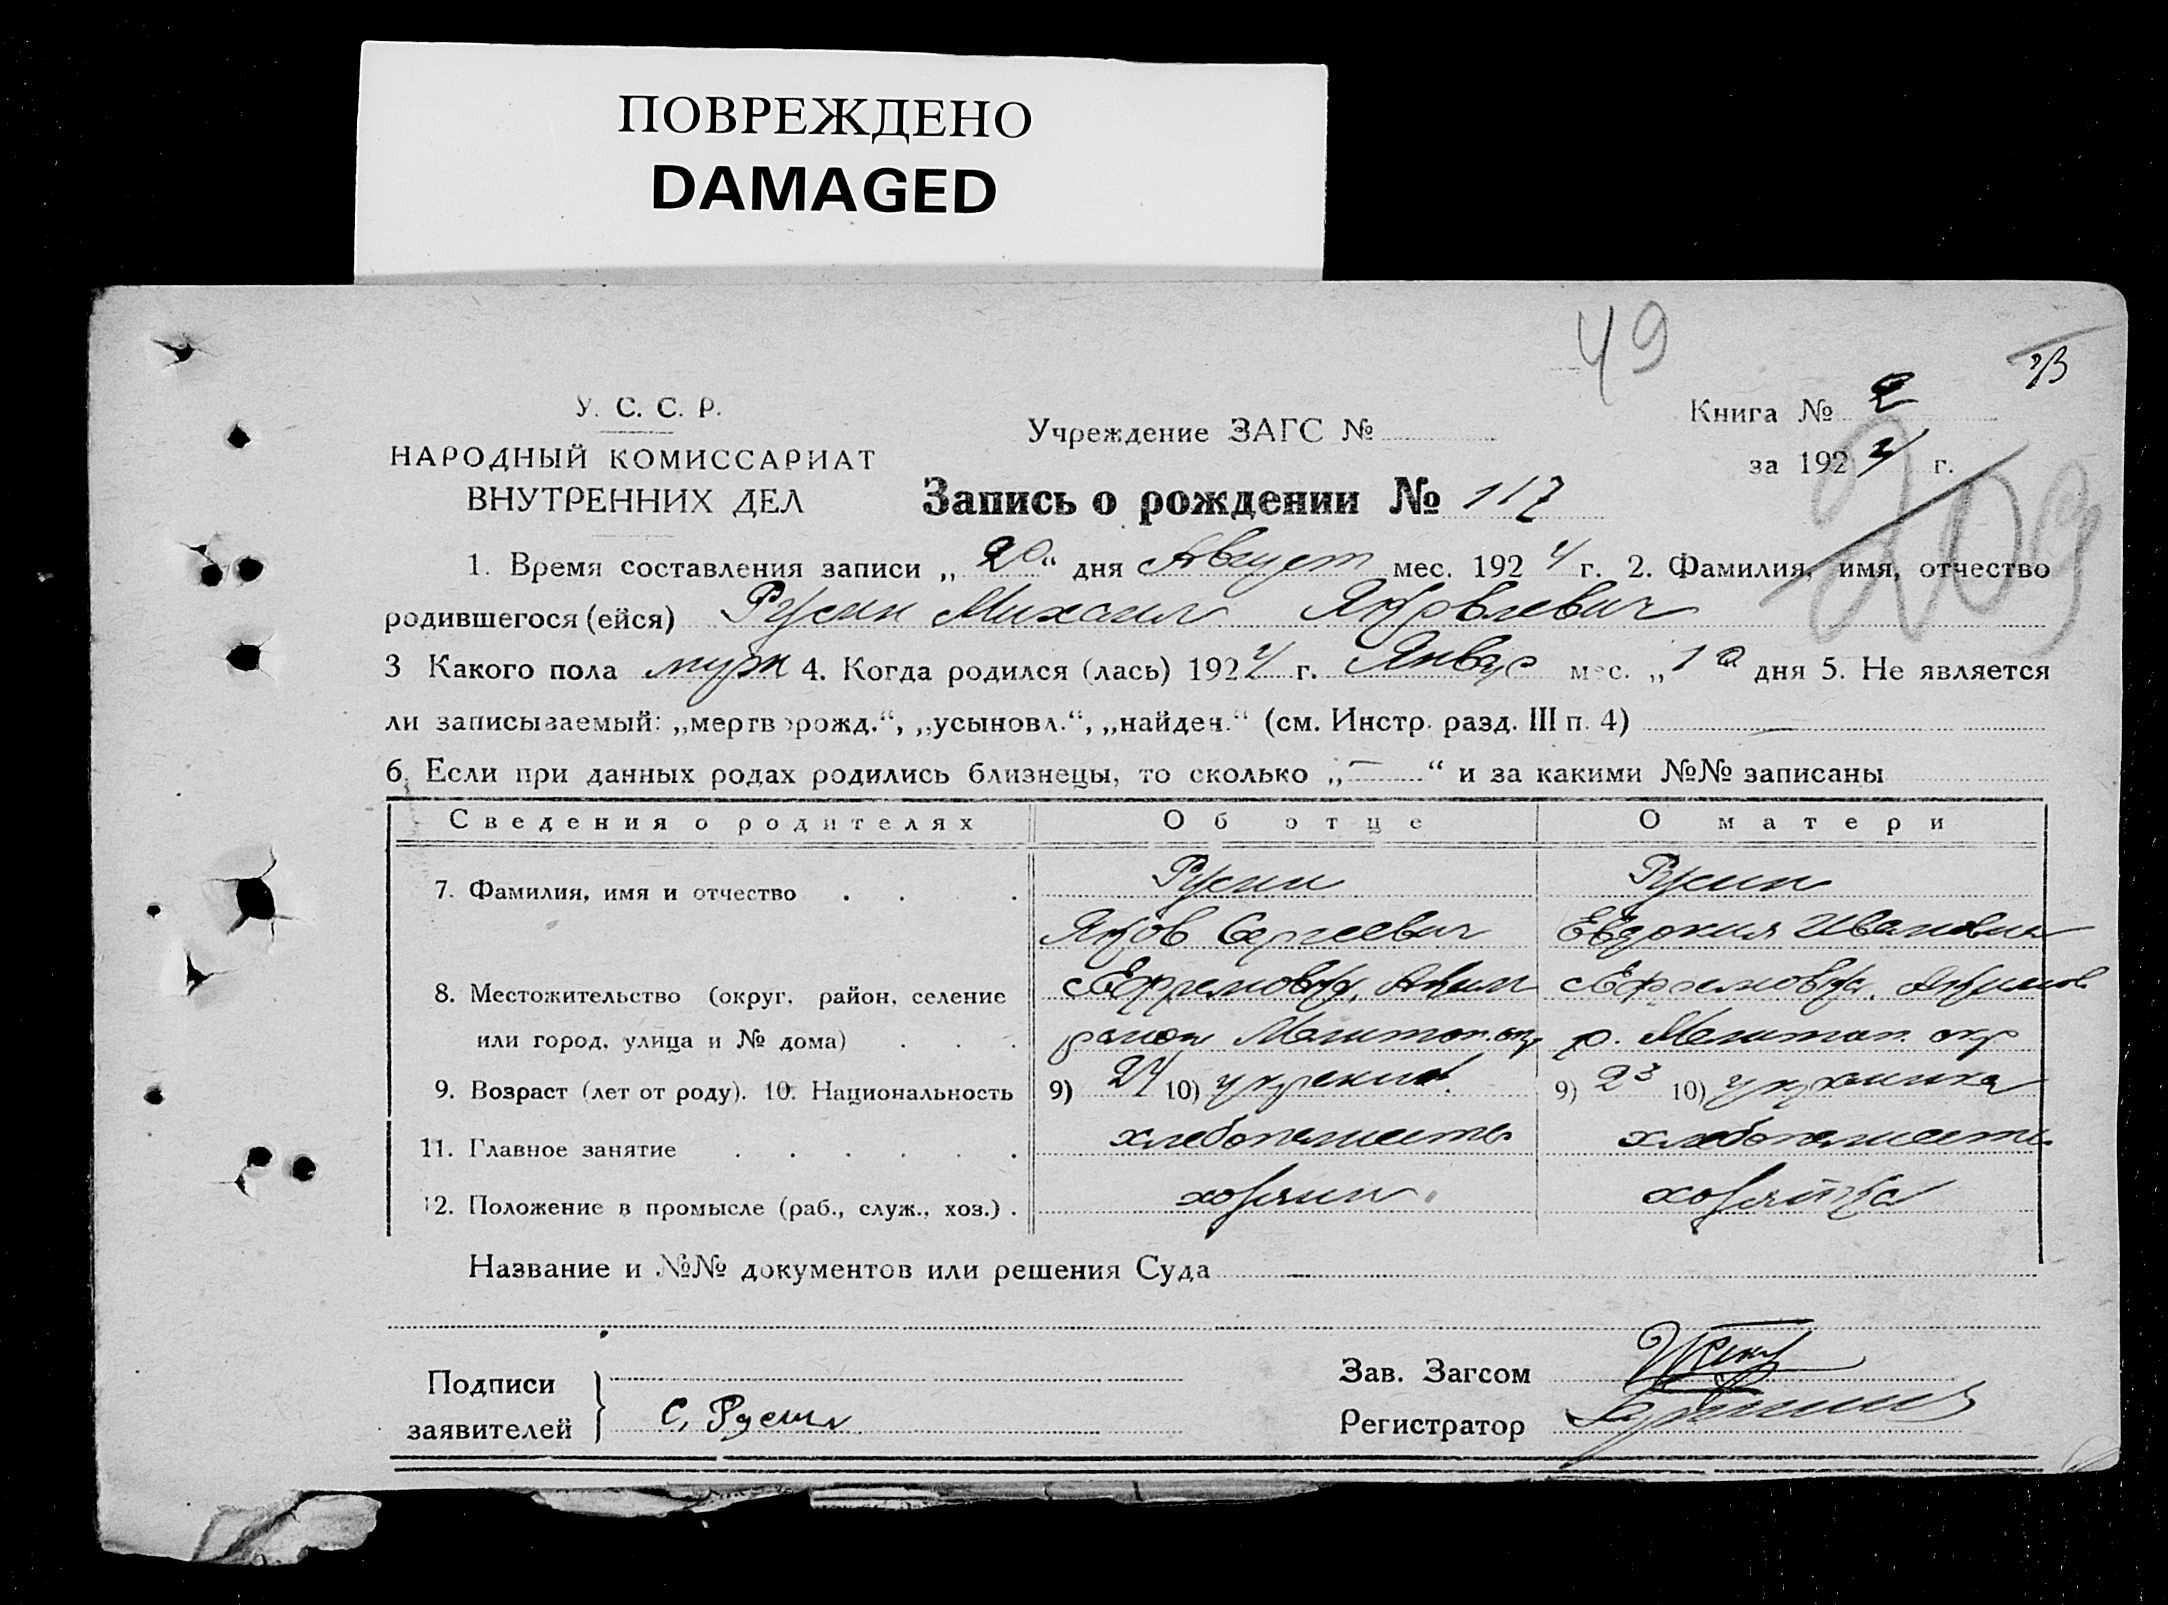 ПОВРЕЖДЕНО
DAMAGED
49
У. С. С. Р.
НАРОДНЫЙ КОМИССАРИАТ
ВНУТРЕННИХ ДЕЛ
Учреждение ЗАГС №
Книга №
за 1924 г.
209
Запись о рождении № 117
1. Время составления записи „20“ дня Август мес. 1924 г. 2. Фамилия, имя, отчество
родившегося (ейся) Русин Михаил Яковлевич
3 Какого пола муж 4. Когда родился (лась) 1924 г. Январ мес. „10 дня 5. Не является
ли записываемый: „мертворожд.“, „усыновл.“, „найден.“ (см. Инстр. разд. III п. 4) —
6. Если при данных родах родились близнецы, то сколько „—“ и за какими №№ записаны
Сведения о родителях Об отце О матери
7. Фамилия, имя и отчество . . . Русин Русин
Яков Сергеевич Евдокия Ивановна
8. Местожительство (округ, район, селение с Ефремовка, Аким с Ефремовка, Акимов.
или город, улица и № дома) . . . район Мелитоп. окр р. Мелитоп. окр
9. Возраст (лет от роду). 10. Национальность 9) 24 10) украин. 9) 23 10) украинка
11. Главное занятие . . . . . . хлебопашест хлебопашест
12. Положение в промысле (раб., служ., хоз.) . хозяин. хозяйка
Название и №№ документов или решения Суда —
Подписи
заявителей
С, Русин
Зав. Загсом
Регистратор